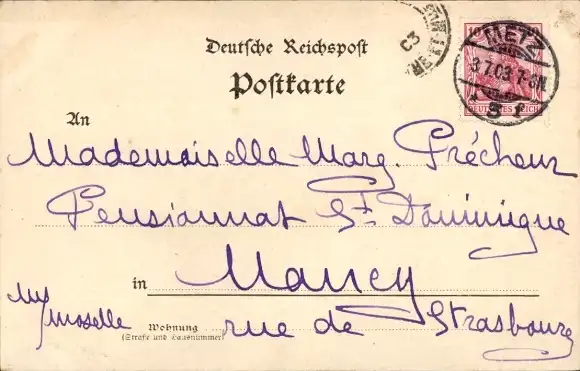 Deutsche Reichspost
Postkarte
METZ
3.7.03. 7-8N
DEUTSCHES REICH
An
Mademoiselle Marg. Précheur
Pensionnat St Dominique
in Nancy
Wohnung
(Straße und Hausnummer)
rue de Strasbourg
Moselle